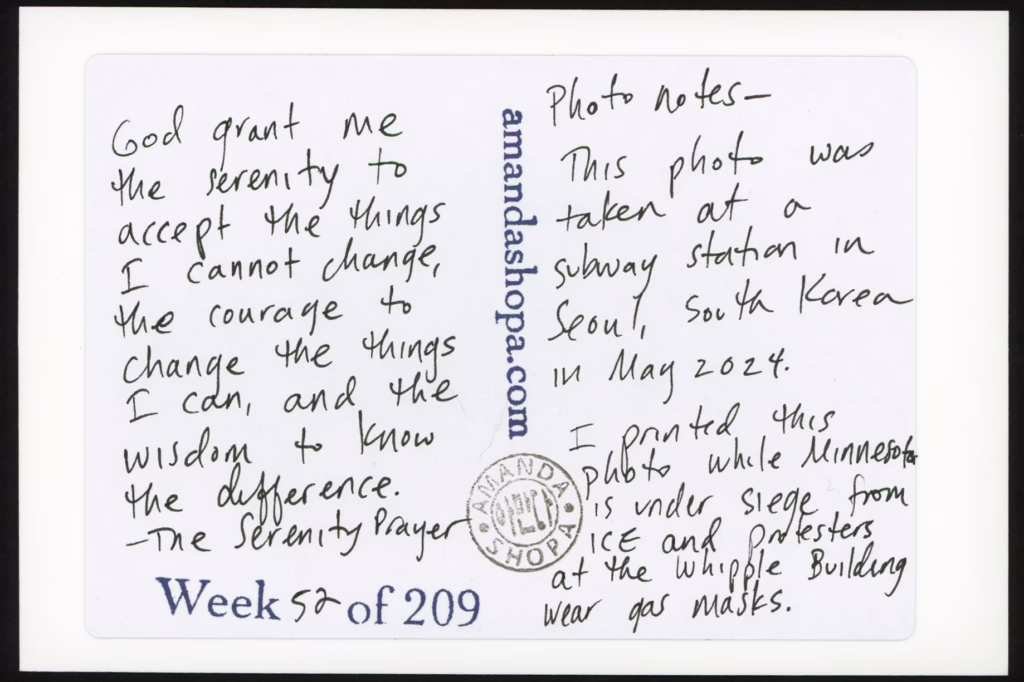 God grant me
the serenity to
accept the things
I cannot change,
the courage to
change the things
I can, and the
wisdom to know
the difference.
—The Serenity Prayer
Week 52 of 209
amandashopa.com
AMANDA
SHOPA
Photo notes—
This photo was
taken at a
subway station in
Seoul, South Korea
in May 2024.
I printed this
photo while Minnesota
is under siege from
ICE and protesters
at the Whipple Building
wear gas masks.